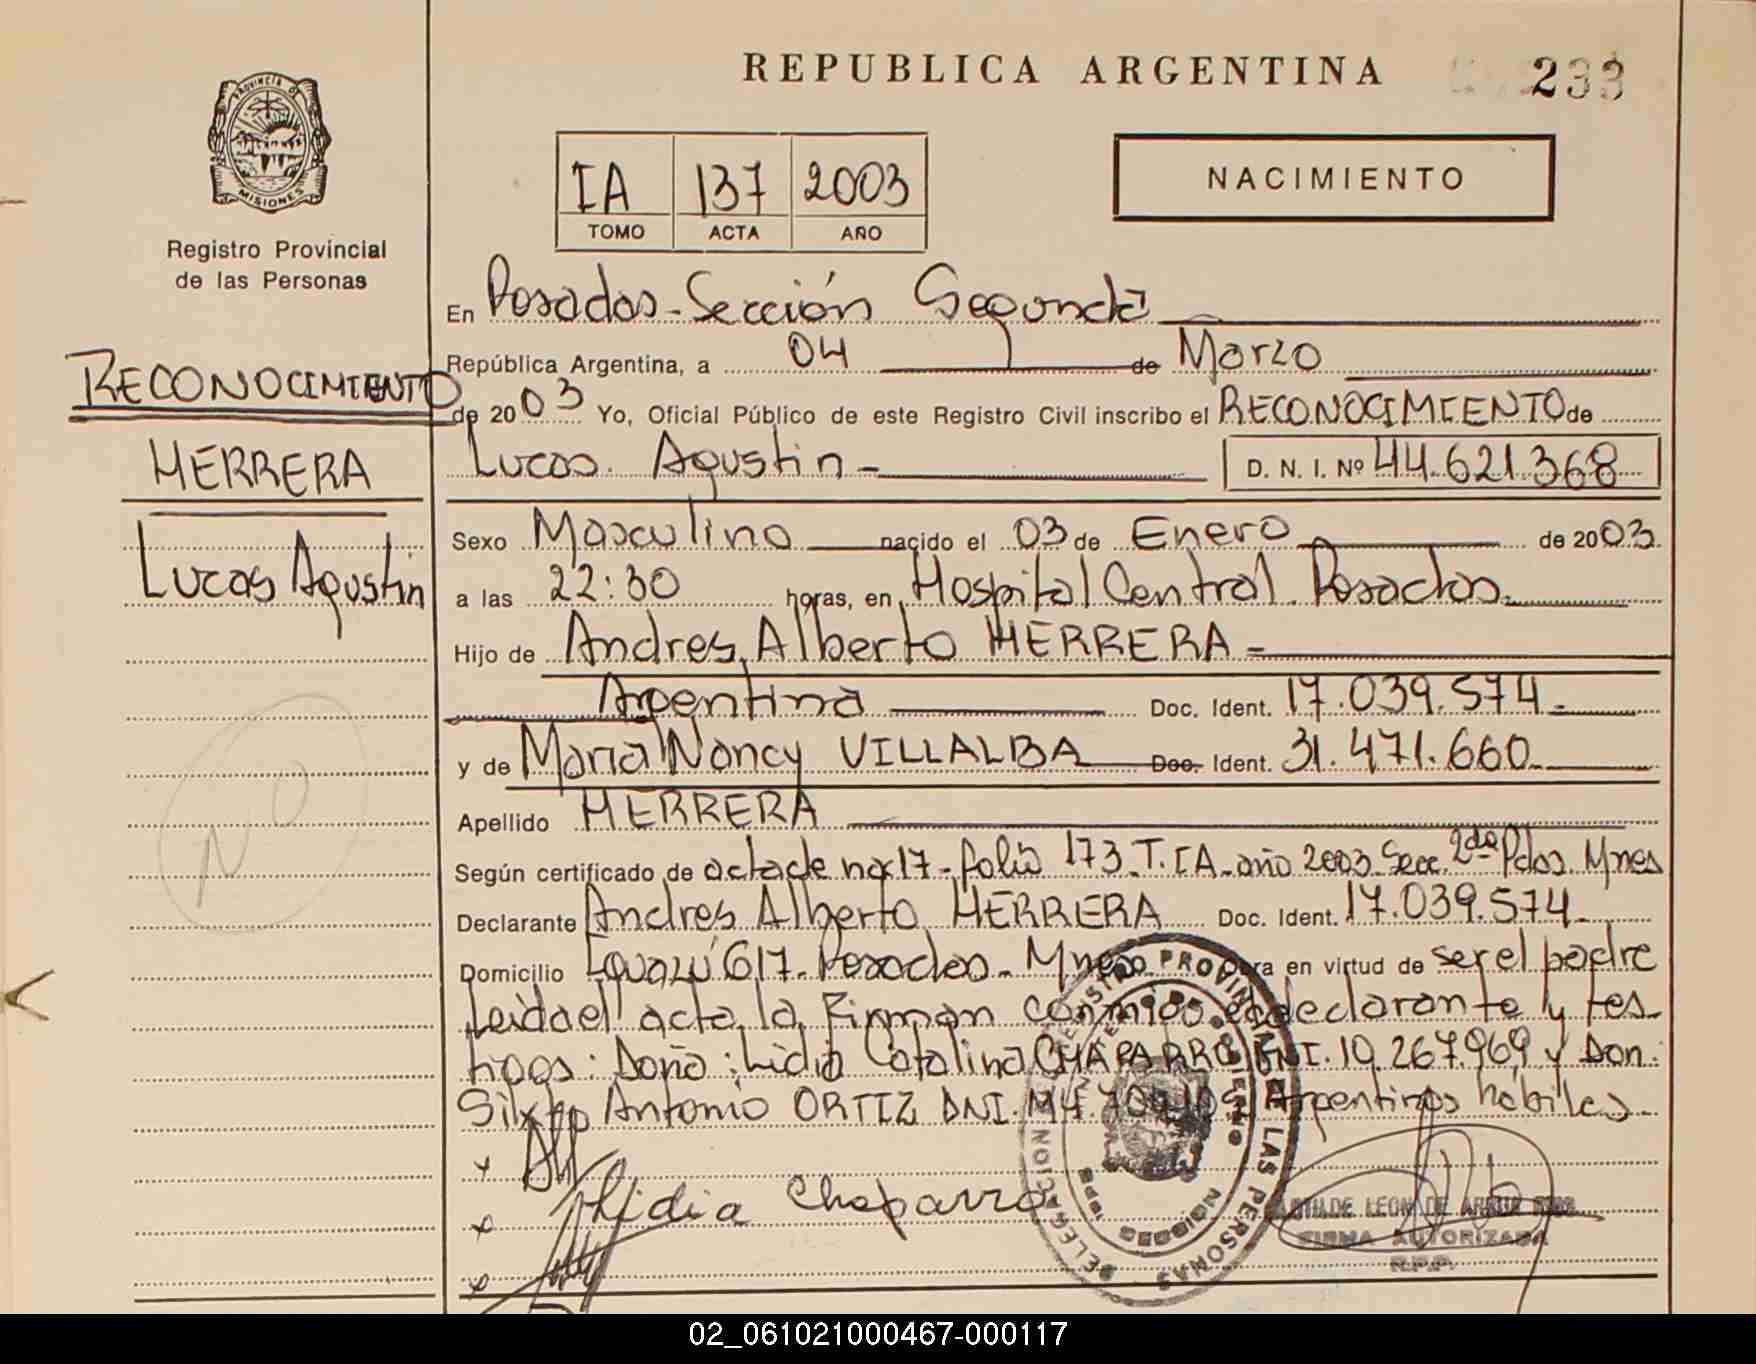 REPUBLICA ARGENTINA
233
PROVINCIA DE
MISIONES
Registro Provincial
de las Personas
IA 137 2003
TOMO ACTA AÑO
NACIMIENTO
En Posadas - Sección Segunda
República Argentina, a 04 de Marzo
RECONOCIMIENTO
de 2003 Yo, Oficial Público de este Registro Civil inscribo el RECONOCIMIENTO de
HERRERA
Lucas Agustin - D. N. I. Nº 44.621.368
Sexo Masculino nacido el 03 de Enero de 2003.
Lucas Agustin
a las 22:30 horas, en Hospital Central Posadas.
Hijo de Andres Alberto HERRERA -
Argentina Doc. Ident. 17.039.574 -
y de Maria Nancy VILLALBA Doc. Ident. 31.471.660
Apellido HERRERA
NO
Según certificado de acta de nac 17 - folio 173 - T. IA - año 2003 Secc. 2da Pdas. Mnes
Declarante Andres Alberto HERRERA Doc. Ident. 17.039.574 -
Domicilio Iguazú 617 - Posadas - Mnes obra en virtud de ser el padre
Leida el acta la Firman conmigo el declarante y tes-
tigos: Doña: Lidia Catalina CHAPARRO DNI. 10.267.969 y Don:
Sixto Antonio ORTIZ DNI. M4. Argentinos habiles.
Lidia Chaparro
DELEGACION REGISTRO PROVINCIAL DE LAS PERSONAS
FIRMA AUTORIZADA
R.P.P.
02_061021000467-000117